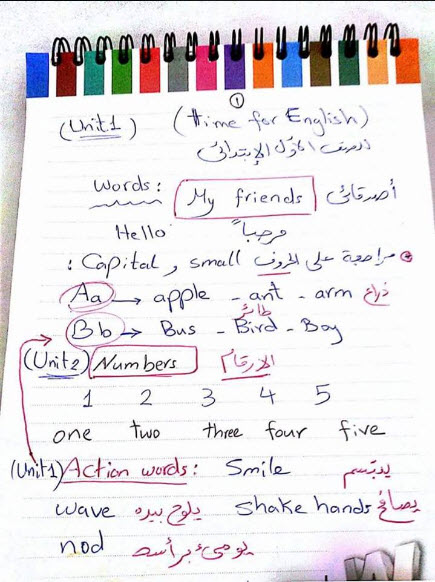 ①
(Unit1) (time for English)
الصف الأول الإبتدائى
Words: My friends أصدقائى
Hello مرحباً
مراجعة على الحروف small و Capital :
Aa → apple - ant - arm ذراع
طائر
Bb → Bus - Bird - Boy
(Unit2) Numbers الارقام
1 2 3 4 5
one two three four five
(Unit1) Action words: Smile يبتسم
wave يلوح بيده shake hands يصافح
nod يومئ برأسه